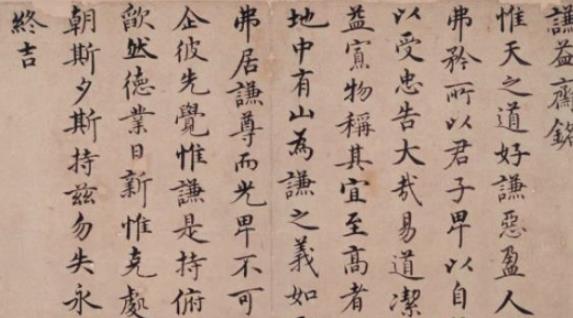 謙益齋銘
惟天之道好謙惡盈人
弗矜所以君子卑以自
以受忠告大哉易道潔
益寡物稱其宜至高者
地中有山為謙之義如
弗居謙尊而光卑不可
企彼先覺惟謙是持俯
欿然德業日新惟克處
朝斯夕斯持茲勿失永
終吉